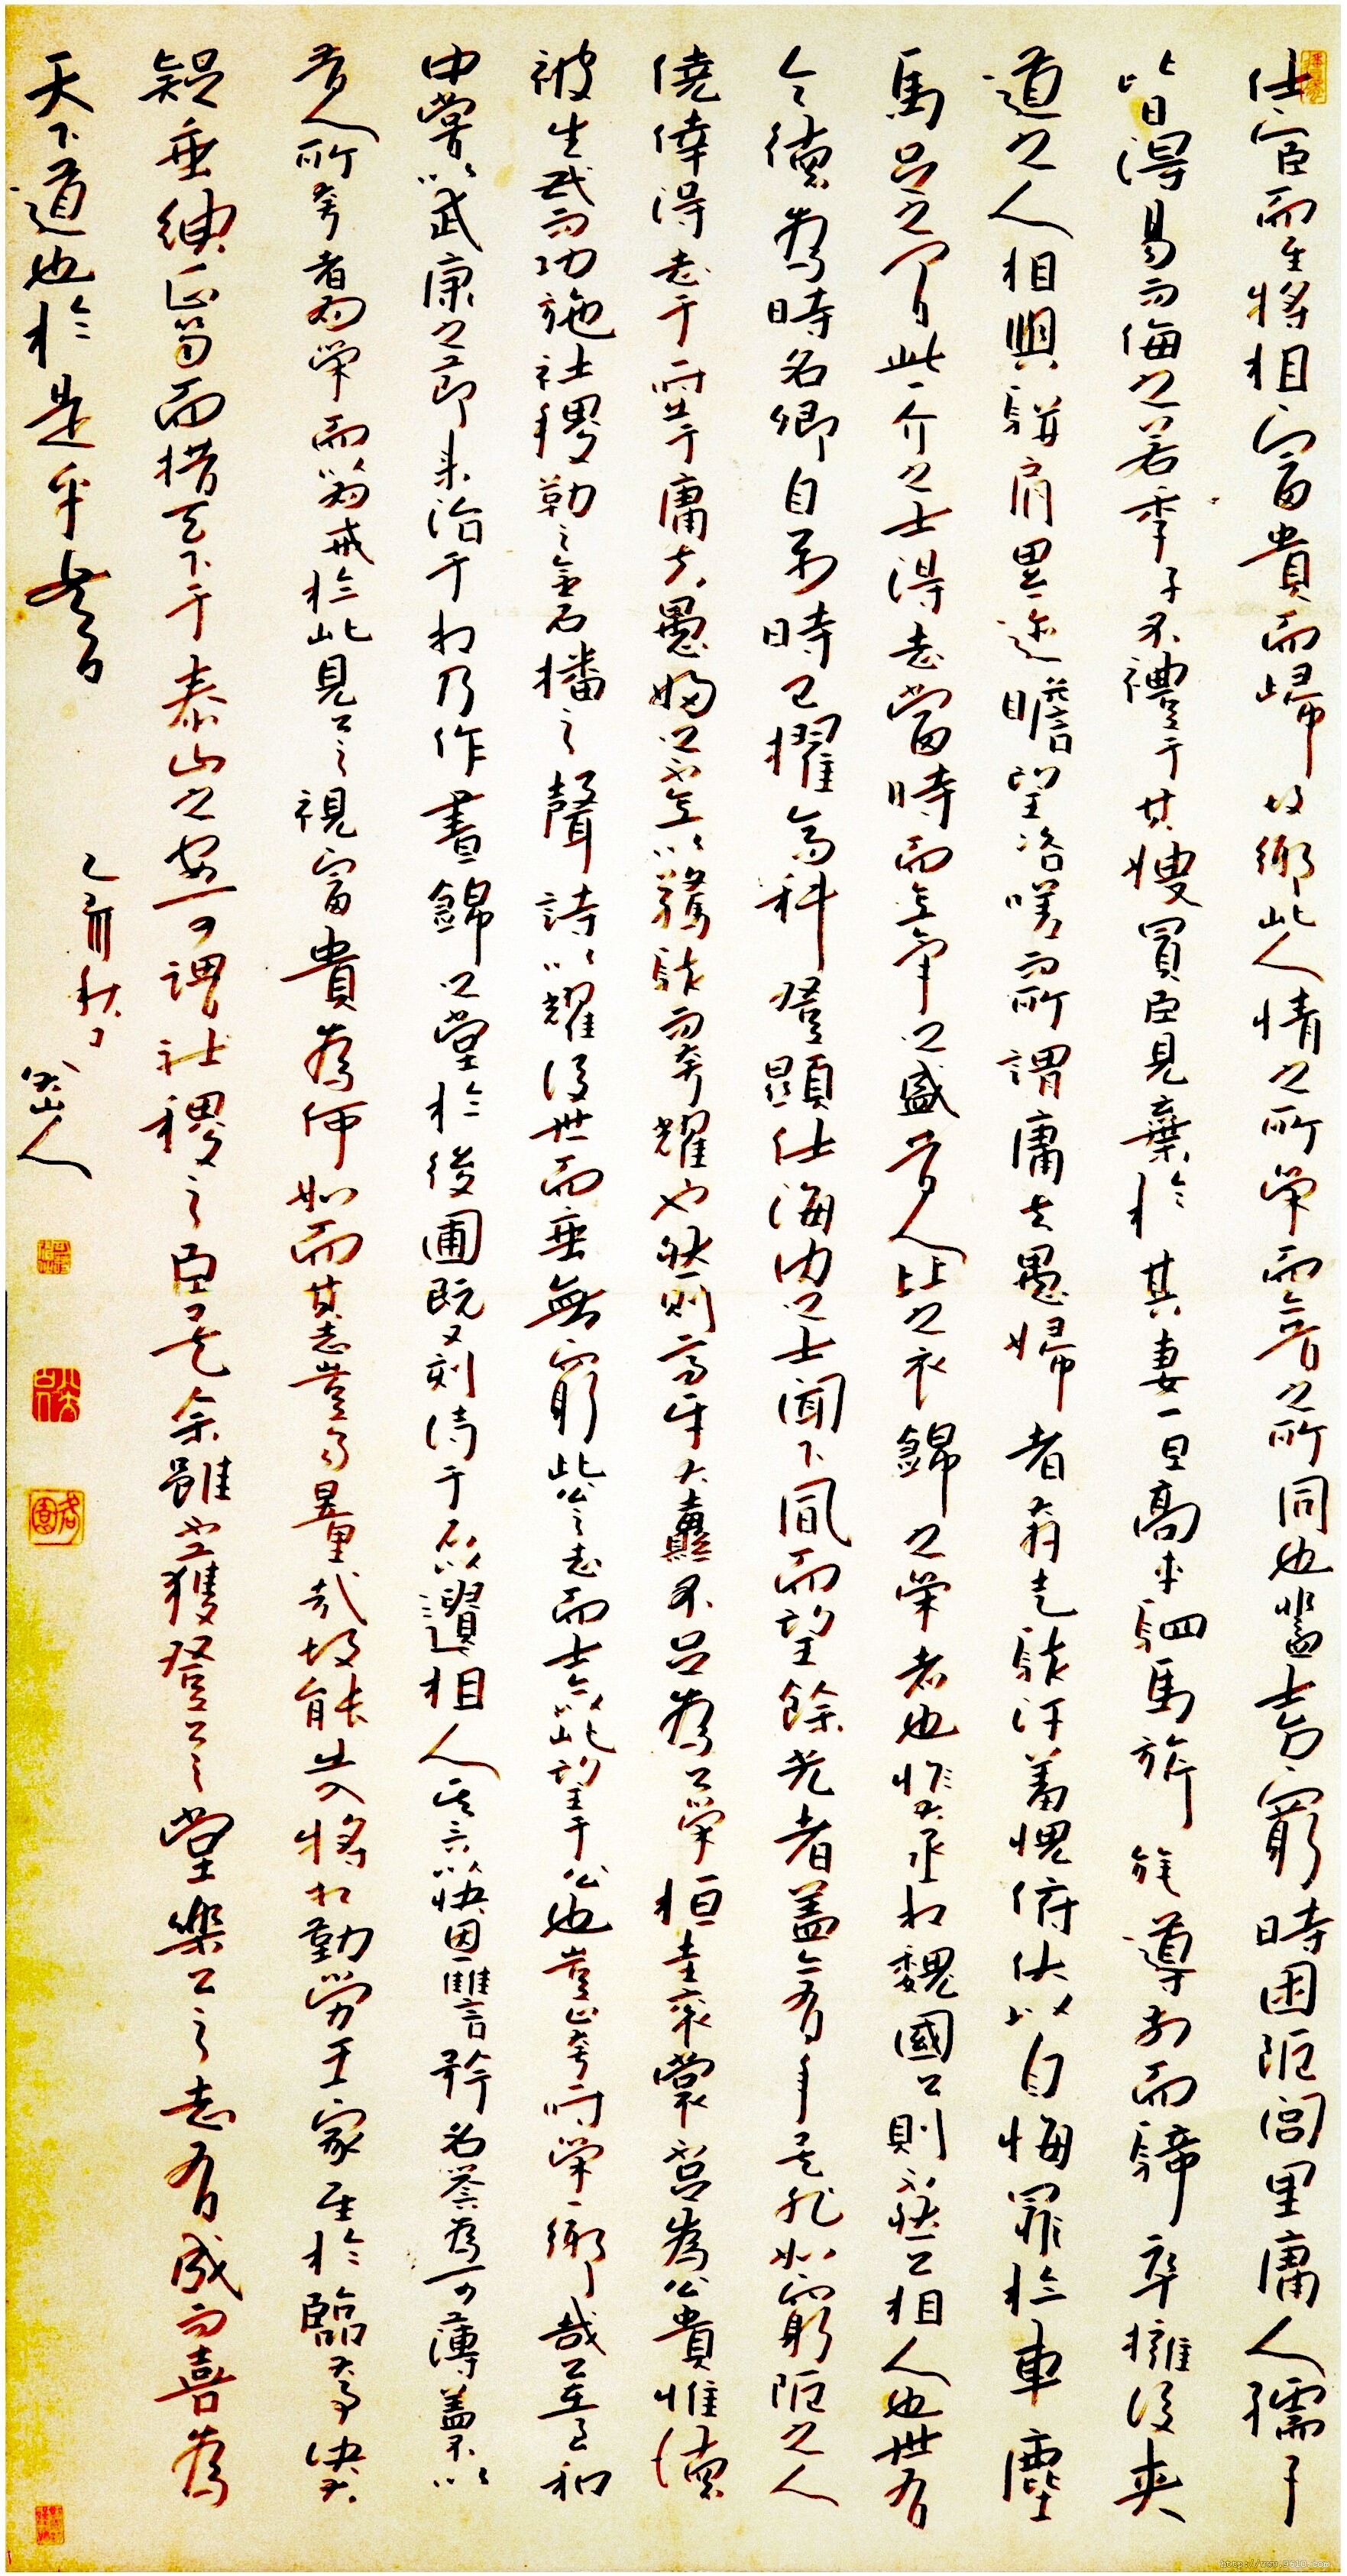 仕宦而至將相富貴而歸故鄉此人情之所榮而今昔之所同也蓋士方窮時困阨閭里庸人孺子
皆得易而侮之若季子不禮于其嫂買臣見棄於其妻一旦高車駟馬旂旄導前而騎卒擁後夾
道之人相與駢肩累迹瞻望咨嗟而所謂庸夫愚婦者奔走駭汗羞愧俯伏以自悔罪於車塵
馬足之間此一介之士得志當時而意氣之盛昔人比之衣錦之榮者也惟大丞相魏國公則不然公相人也世有
令德為時名卿自公少時已擢高科登顯仕海內之士聞下風而望餘光者蓋亦有年是非如窮阨之人
僥倖得志于一時出于庸夫愚婦之不意以驚駭而夸耀也然則高牙大纛不足為公榮桓圭衮裳不足為公貴惟德
被生民而功施社稷勒之金石播之聲詩以耀後世而垂無窮此公之志而士亦以此望于公也豈止夸一時榮一鄉哉公在至和
中嘗以武康之節來治于相乃作晝錦之堂於後圃既又刻詩于石以遺相人其言以快恩讐矜名譽為可薄蓋不以
昔人所夸者為榮而以為戒於此見公之視富貴為何如而其志豈易量哉故能出入將相勤勞王家至於臨大事決大
疑垂紳正笏而措天下于泰山之安可謂社稷之臣矣余雖不獲登公之堂樂公之志有成而喜為
天下道也於是乎書
乙亥秋日
八大山人